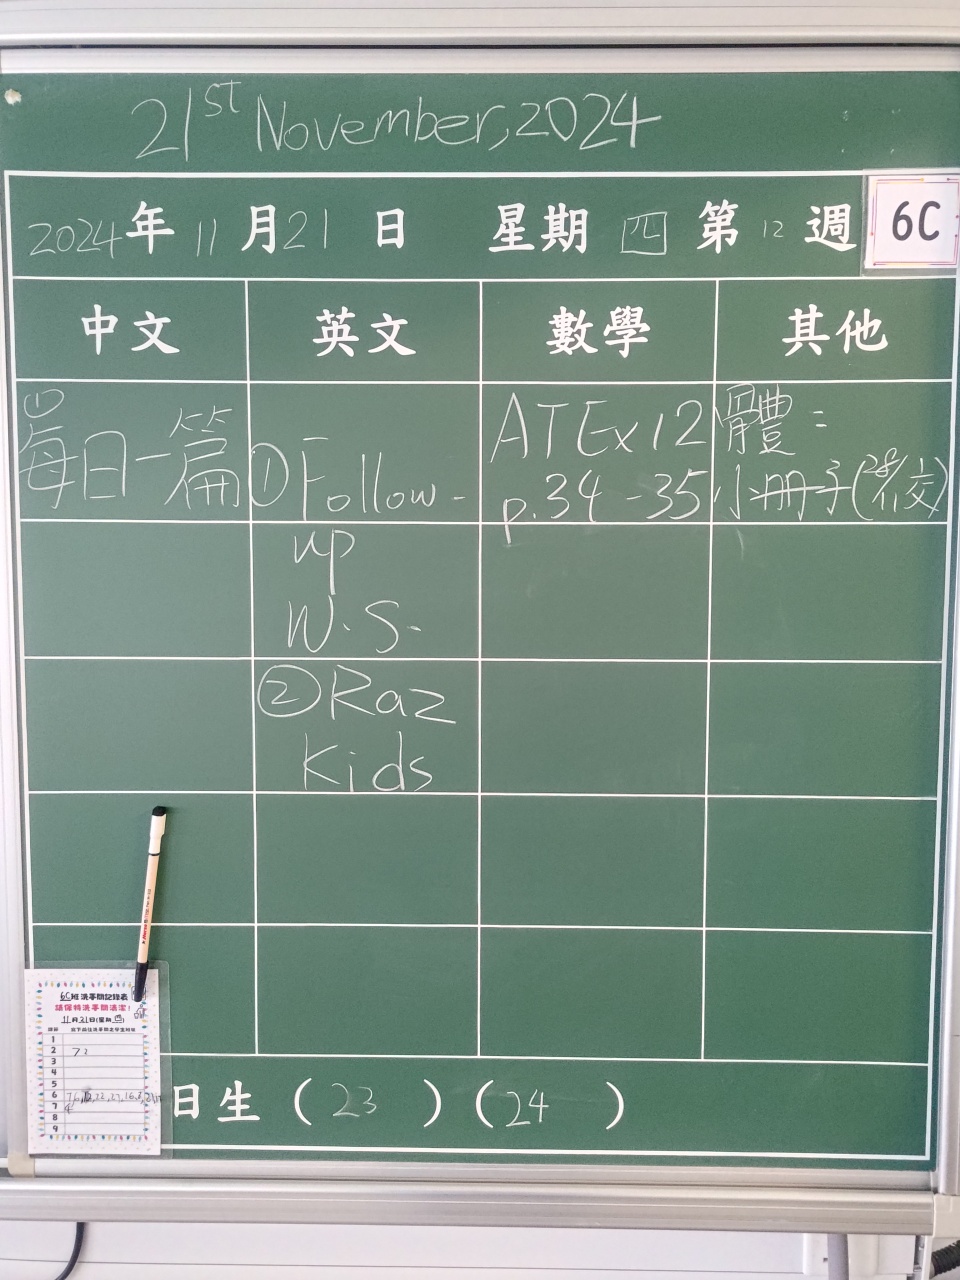 21st November, 2024
2024年11月21日 星期四 第12週 6C
中文 英文 數學 其他
① 每日一篇
① Follow-
up
W.S.
② Raz
Kids
AT Ex12
p.34-35
體:
小冊子(28/11交)
6C班洗手間記錄表
請保持洗手間清潔!
11月21日(星期四)
1
2 7 2
3
4
5
6
7
8
9
日生 (23) (24)